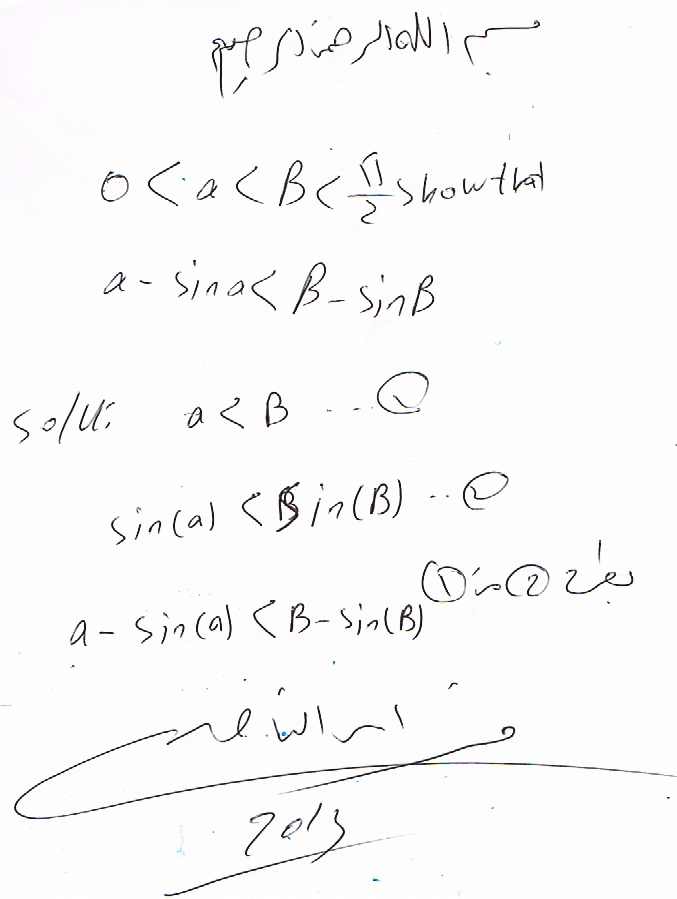 بسم الله الرحمن الرحيم
0 < a < B < π/2 show that
a - sin a < B - sin B
solu: a < B ... ①
sin(a) < sin(B) .. ②
بطرح ② من ①
a - sin(a) < B - sin(B)
2013